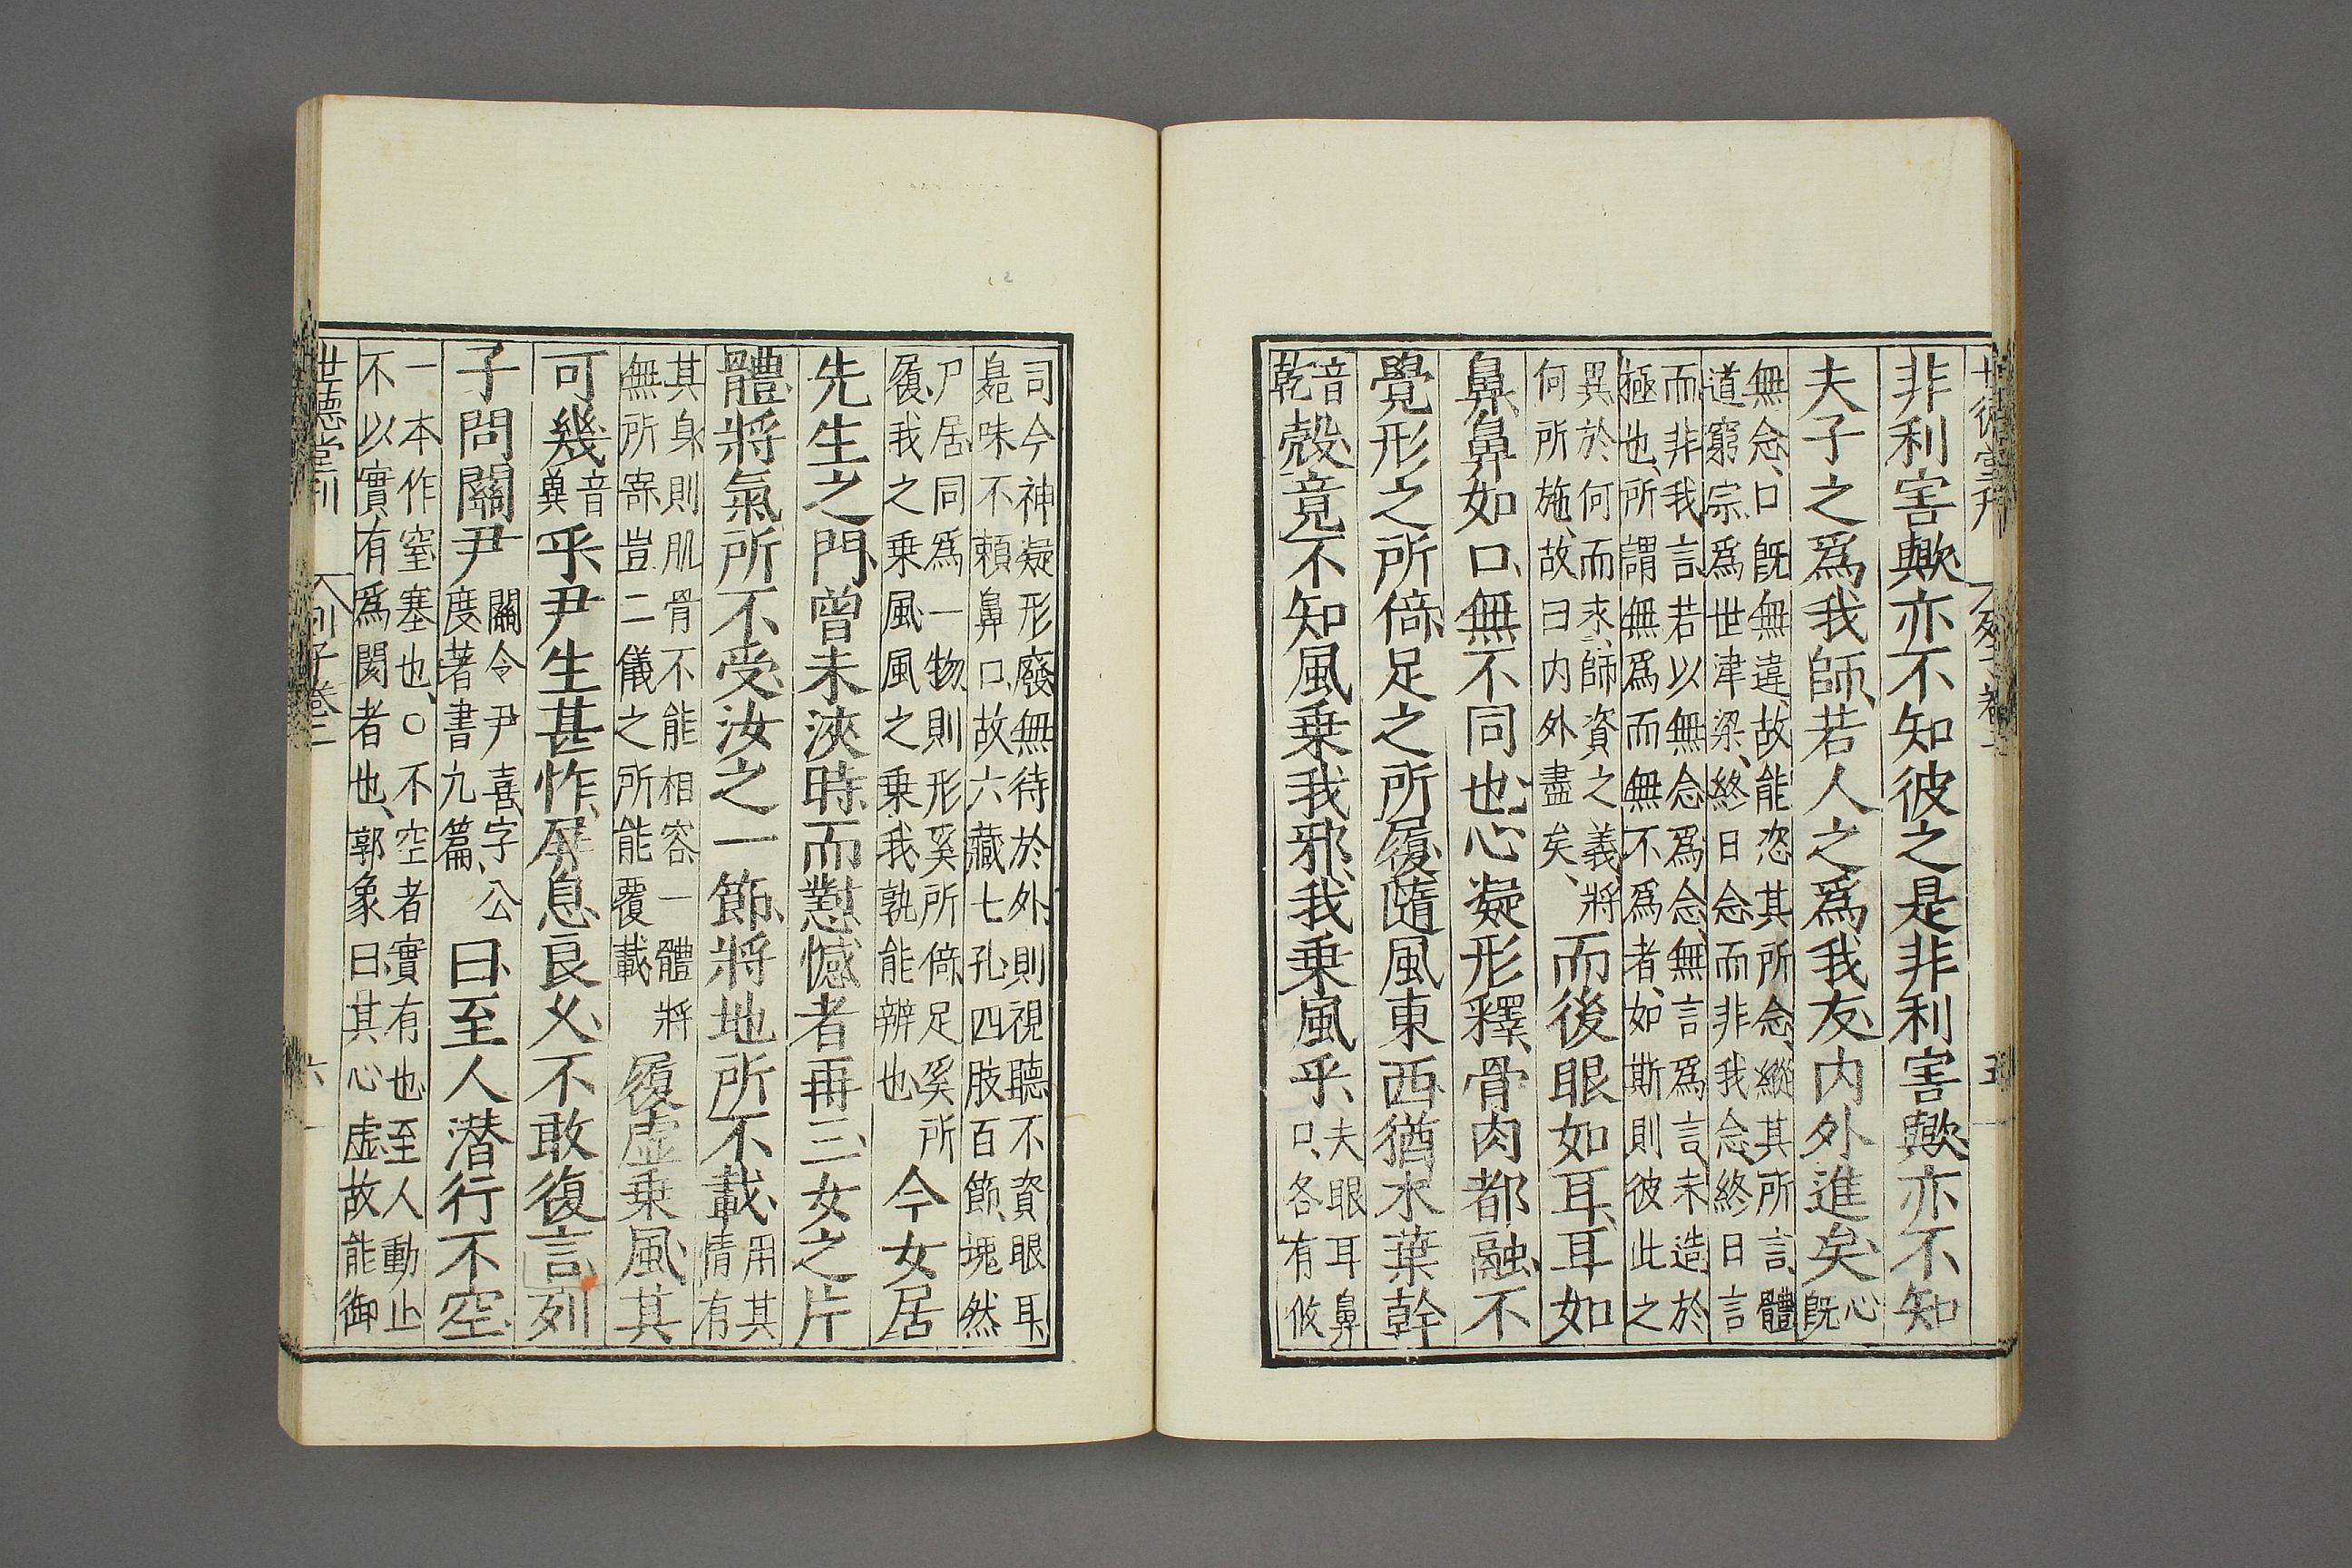 世德堂刊
列子卷二
五
非利害歟亦不知彼之是非利害歟亦不知
夫子之爲我師、若人之爲我友、内外進矣、心
旣
無念、口旣無違、故能恣其所念、縱其所言、體
道窮宗、爲世津梁、終日念而非我念、終日言
而非我言、若以無念爲念、無言爲言、未造於
極也、所謂無爲而無不爲者、如斯則彼此之
異於何而求、師資之義、將
何所施、故曰内外盡矣、
而後眼如耳、耳如
鼻、鼻如口、無不同也、心凝形釋、骨肉都融、不
覺形之所倚、足之所履、隨風東西、猶木葉幹
音
乾
殻、竟不知風乗我邪、我乗風乎、
夫眼耳鼻
口、各有攸
司、今神凝形廢、無待於外、則視聽不資眼耳、
臭味不賴鼻口、故六藏七孔、四肢百節、塊然
尸居、同爲一物、則形奚所倚、足奚所
履、我之乗風、風之乗我、孰能辨也、
今女居
先生之門、曾未浹時、而懟憾者再三、女之片
體將氣所不受、汝之一節、將地所不載、
用其
情有
其身、則肌骨不能相容、一體將
無所寄、豈二儀之所能覆載、
履虛乗風、其
可幾
音
冀
乎、尹生甚怍、屏息良久、不敢復言、列
子問關尹
關令尹喜、字公
度、著書九篇、
曰、至人潜行不空
一本作窒塞也、○不空者、實有也、至人動止
不以實有爲閡者也、郭象曰、其心虛、故能御
世德堂刊
列子卷二
六